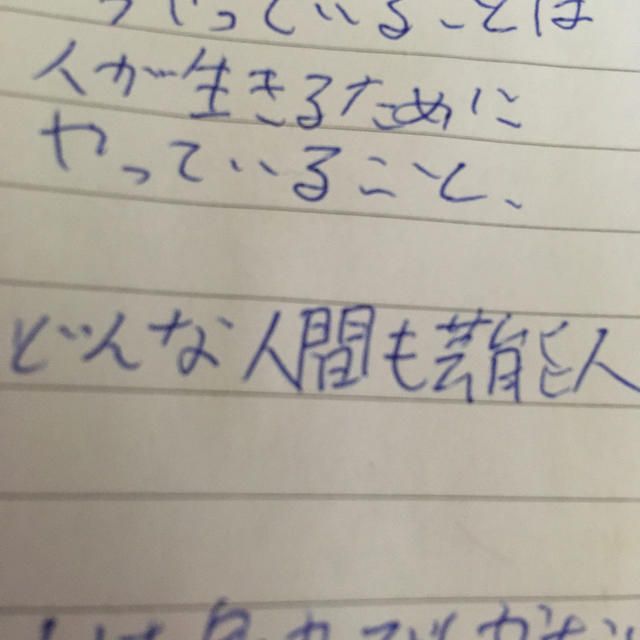 やっていることは
人が生きるために
やっていること、
どんな人間も芸能人